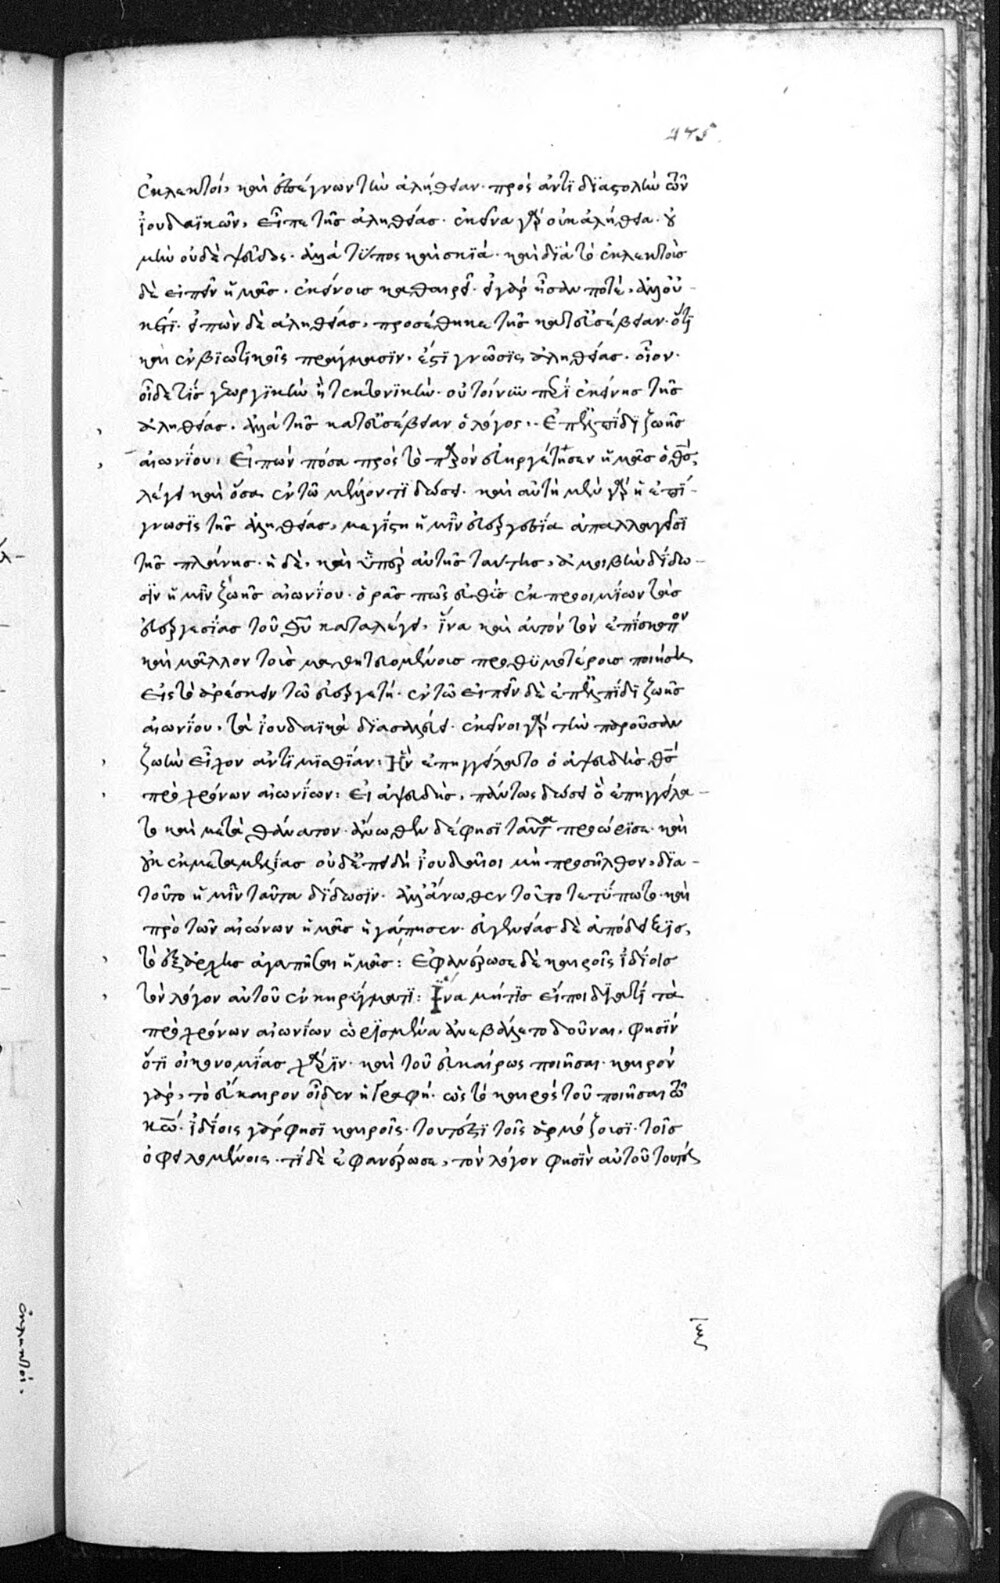 ἐκλεκτοί, καὶ ἐπέγνων τὴν ἀλήθειαν· πρὸς ἀντιδιαστολὴν τῶν
ἰουδαϊκῶν, εἶπε τῆς ἀληθείας· ἐκεῖνα γὰρ οὐκ ἀλήθεια· οὐ
μὴν οὐδὲ ψεῦδος· ἀλλὰ τύπος καὶ σκιά· καὶ διὰ τὸ ἐκλεκτοὺς
δὲ εἰπεῖν ἡμᾶς· ἐκείνοις καθαιρεῖ· εἰ γὰρ ἦσαν ποτέ, ἀλλ' οὐ-
κέτι· εἰπὼν δὲ ἀληθείας, προσέθηκε τῆς κατ' εὐσέβειαν· ὅτι
καὶ ἐν βιωτικοῖς πράγμασιν, ἔστι γνῶσις ἀληθείας· οἷον·
οἶδέ τις γεωργικὴν ἢ τεκτονικήν· οὐ τοίνυν περὶ ἐκείνης τῆς
ἀληθείας· ἀλλὰ τῆς κατ' εὐσέβειαν ὁ λόγος·· Ἐπ' ἐλπίδι ζωῆς
αἰωνίου, Εἰπὼν πόσα πρὸς τὸ παρὸν εὐηργέτησεν ἡμᾶς ὁ θς,
λέγει καὶ ὅσα ἐν τῷ μέλλοντι δώσει· καὶ αὐτὴ μὲν γὰρ ἡ ἐπί-
γνωσις τῆς ἀληθείας, μεγίστη ἡμῖν εὐεργεσία ἀπαλλαγεῖσι
τῆς πλάνης· ἡ δὲ, καὶ ὑπὲρ αὐτῆς ταύτης, ἀμοιβὴν δίδω-
σιν ἡμῖν ζωῆς αἰωνίου· ὁρᾶς πῶς εὐθὺς ἐκ προοιμίων τὰς
εὐεργεσίας τοῦ θυ καταλέγει, ἵνα καὶ αὐτὸν τὸν ἐπίσκοπον
καὶ μᾶλλον τοὺς μαθητευομένους προθυμοτέρους ποιήσῃ
εἰς τὸ ἀρέσκειν τῷ εὐεργέτῃ· ἐν τῷ εἰπεῖν δὲ ἐπ' ἐλπίδι ζωῆς
αἰωνίου, τὰ ἰουδαϊκὰ διασαλεύει· ἐκεῖνοι γὰρ τὴν παροῦσαν
ζωὴν εἶχον ἀντιμισθίαν: Ἣν ἐπηγγείλατο ὁ ἀψευδὴς θς
πρὸ χρόνων αἰωνίων: Εἰ ἀψευδὴς, πάντως δώσει ὃ ἐπηγγείλα-
το καὶ μετὰ θάνατον· ἄνωθεν δέ φησι ταῦτα προώρισε· καὶ
οὐκ ἐκ μεταμελείας οὐδ' ἐπειδὴ ἰουδαῖοι μὴ προσῆλθον, δια-
τοῦτο ἡμῖν ταῦτα δίδωσιν· ἀλλ' ἄνωθεν τοῦτο τετύπωτο· καὶ
πρὸ τῶν αἰώνων ἡμᾶς ἠγάπησεν· εὐγενείας δὲ ἀπόδειξις,
τὸ ἐξαρχῆς ἀγαπῆσαι ἡμᾶς: Ἐφανέρωσε δὲ καιροῖς ἰδίοις
τὸν λόγον αὐτοῦ ἐν κηρύγματι: Ἵνα μήτις εἴποι διατί τὰ
πρὸ χρόνων αἰωνίων ὡρισμένα ἀνεβάλλετο δοῦναι, φησὶν
ὅτι οἰκονομίας χάριν· καὶ τοῦ εὐκαίρως ποιῆσαι· καιρὸν
γὰρ, τὸ εὔκαιρον οἶδεν ἡ γραφή· ὡς τὸ καιρὸς τοῦ ποιῆσαι τῷ
κω· ἰδίοις γάρ φησι καιροῖς· τουτέστι τοῖς ἁρμόζουσι· τοῖς
ὀφειλομένοις· τί δὲ ἐφανέρωσε, τὸν λόγον φησὶν αὐτοῦ τουτέστι
ξ